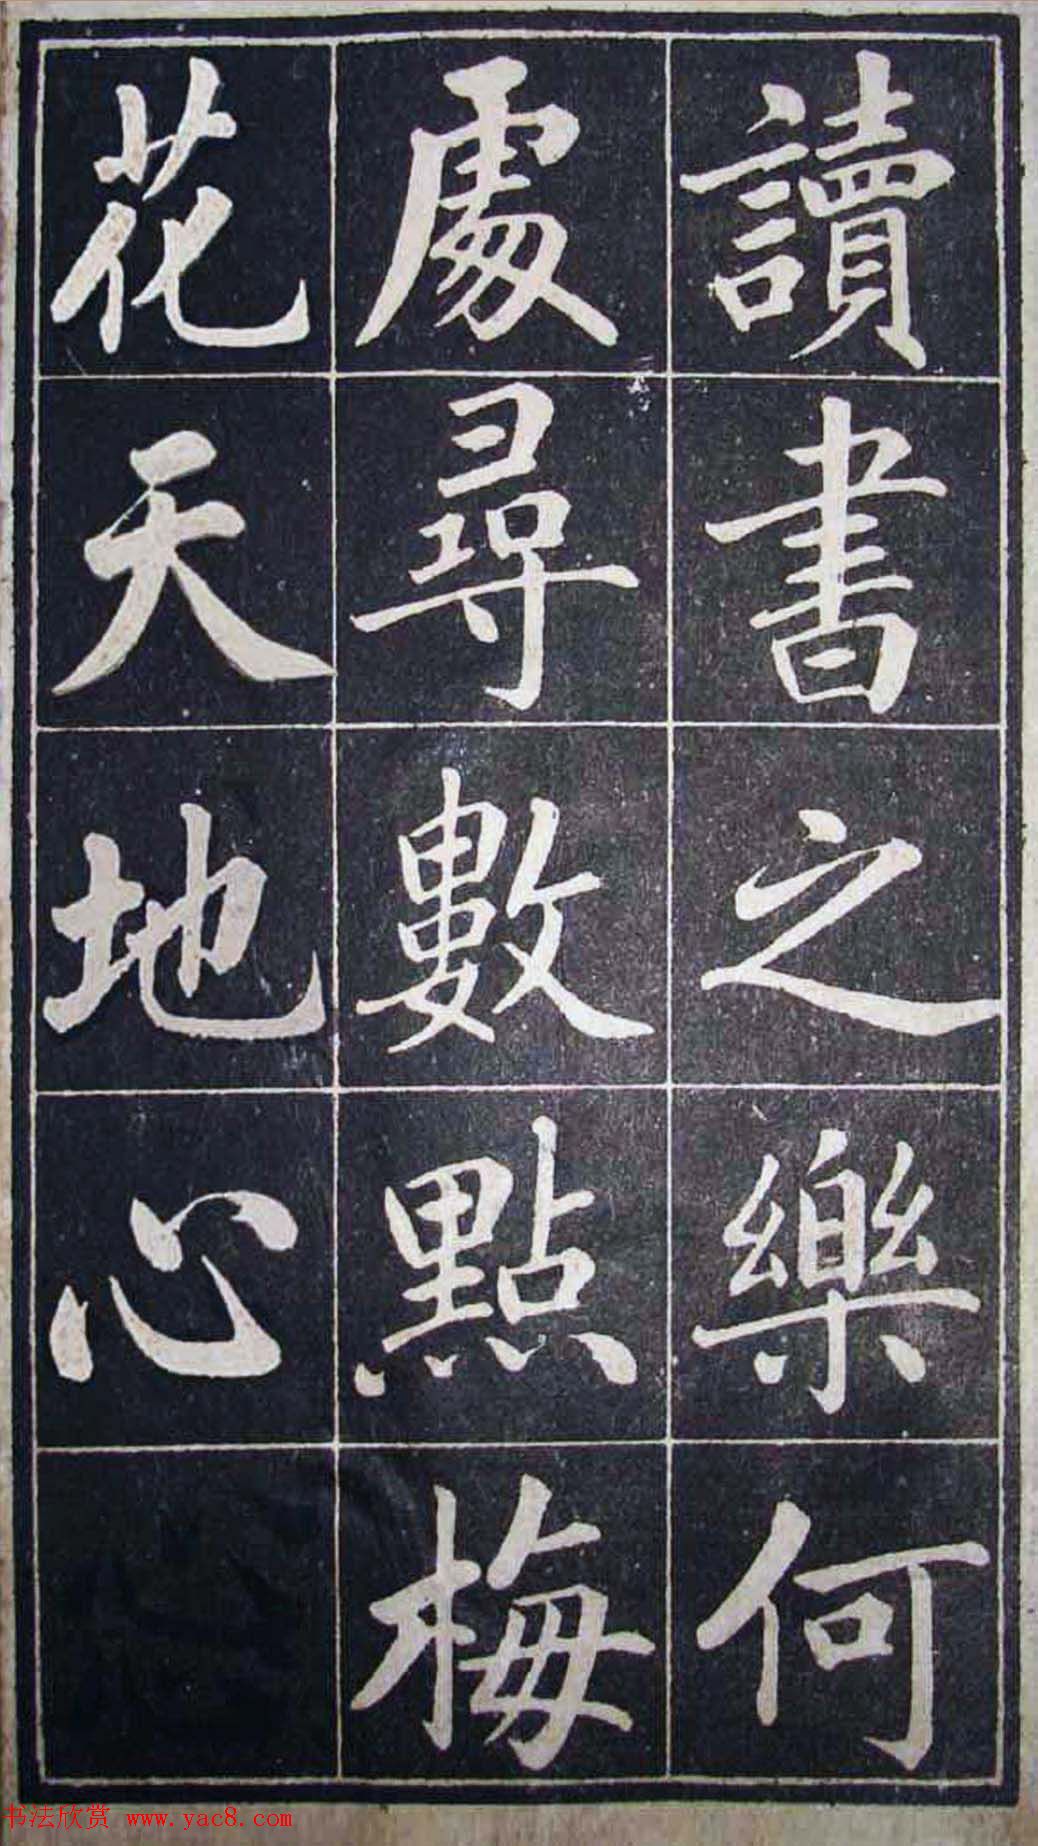 讀書之樂何
處尋數點梅
花天地心
书法欣赏 www.yac8.com